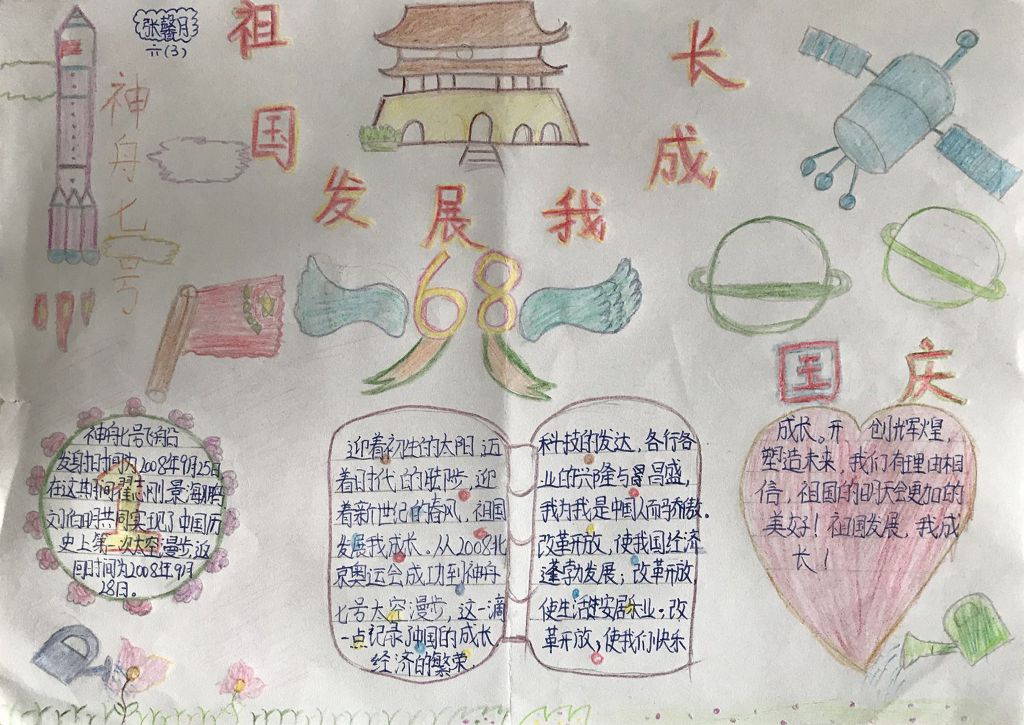 张馨月
六(3)
祖
国
发
展
我
成
长
神
舟
七
号
68
国 庆
神舟七号飞船
发射时间为2008年9月25日
在这共同翟志刚.景海鹏
刘伯明共同实现了中国历
史上第一次太空漫步.返
回时间为2008年9月
28日。
迎着初生的太阳,迈
着时代的脚步,迎
着新世纪的春风,祖国
发展我成长。从2008北
京奥运会成功到神舟
七号太空漫步,这一滴
一点记录了中国的成长
经济的繁荣
科技的发达,各行各
业的兴隆与昌盛,
我为我是中国人而骄傲。
改革开放,使我国经济
蓬勃发展;改革开放
使生活安居乐业;改
革开放,使我们快乐
成长。开 创光辉煌,
塑造未来,我们有理由相
信,祖国的明天会更加的
美好!祖国发展,我成
长!